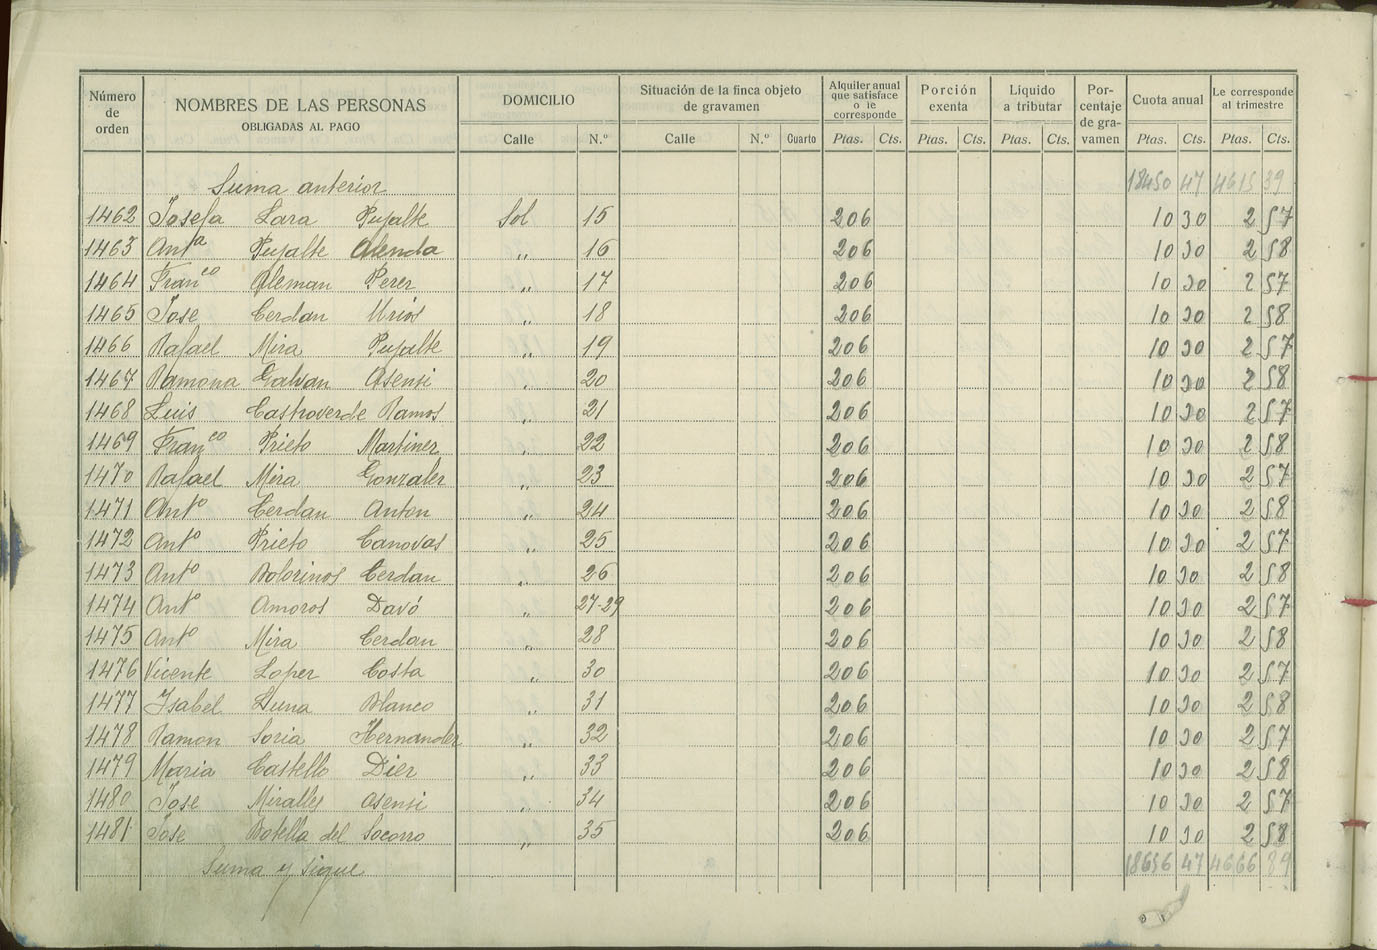 Número de orden NOMBRES DE LAS PERSONAS OBLIGADAS AL PAGO DOMICILIO Situación de la finca objeto de gravamen Alquiler anual que satisface o le corresponde Porción exenta Líquido a tributar Por-centaje de gra-vamen Cuota anual Le corresponde al trimestre
Calle N.º Calle N.º Cuarto Ptas. Cts. Ptas. Cts. Ptas. Cts. Ptas. Cts. Ptas. Cts.
Suma anterior 18450 47 4615 39
1462 Josefa Lara Pujalte Sol 15 206 10 30 2 57
1463 Antª Pujalte Alenda " 16 206 10 30 2 58
1464 Franco Aleman Perez " 17 206 10 30 2 57
1465 Jose Cerdan Urios " 18 206 10 30 2 58
1466 Rafael Mira Pujalte " 19 206 10 30 2 57
1467 Ramona Galvan Asensi " 20 206 10 30 2 58
1468 Luis Castroverde Ramos " 21 206 10 30 2 57
1469 Franco Prieto Martinez " 22 206 10 30 2 58
1470 Rafael Mira Gonzalez " 23 206 10 30 2 57
1471 Antº Cerdan Anton " 24 206 10 30 2 58
1472 Antº Prieto Canovas " 25 206 10 30 2 57
1473 Antº Bolorinos Cerdan " 26 206 10 30 2 58
1474 Antº Amoros Davó " 27-29 206 10 30 2 57
1475 Antº Mira Cerdan " 28 206 10 30 2 58
1476 Vicente Lopez Costa " 30 206 10 30 2 57
1477 Isabel Luna Blanco " 31 206 10 30 2 58
1478 Ramon Soria Hernandez " 32 206 10 30 2 57
1479 Maria Castello Diez " 33 206 10 30 2 58
1480 Jose Miralles Asensi " 34 206 10 30 2 57
1481 Jose Botella del Socorro " 35 206 10 30 2 58
Suma y sigue 18656 47 4666 89